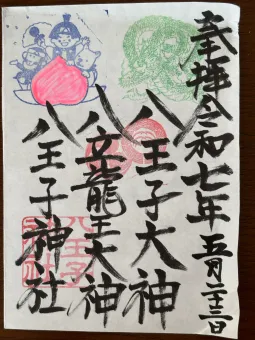 奉拝 令和七年 五月二十三日
八王子大神
八大龍王大神
八王子神社
八王子
神社